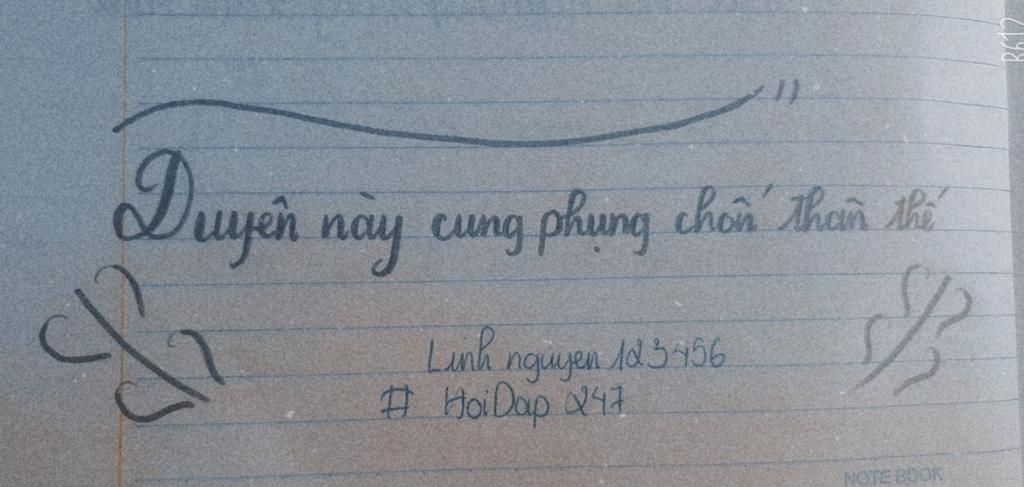 Duyên này cung phụng chốn thần thế
Linh nguyen 123456
# HoiDap 247
NOTE BOOK
B612